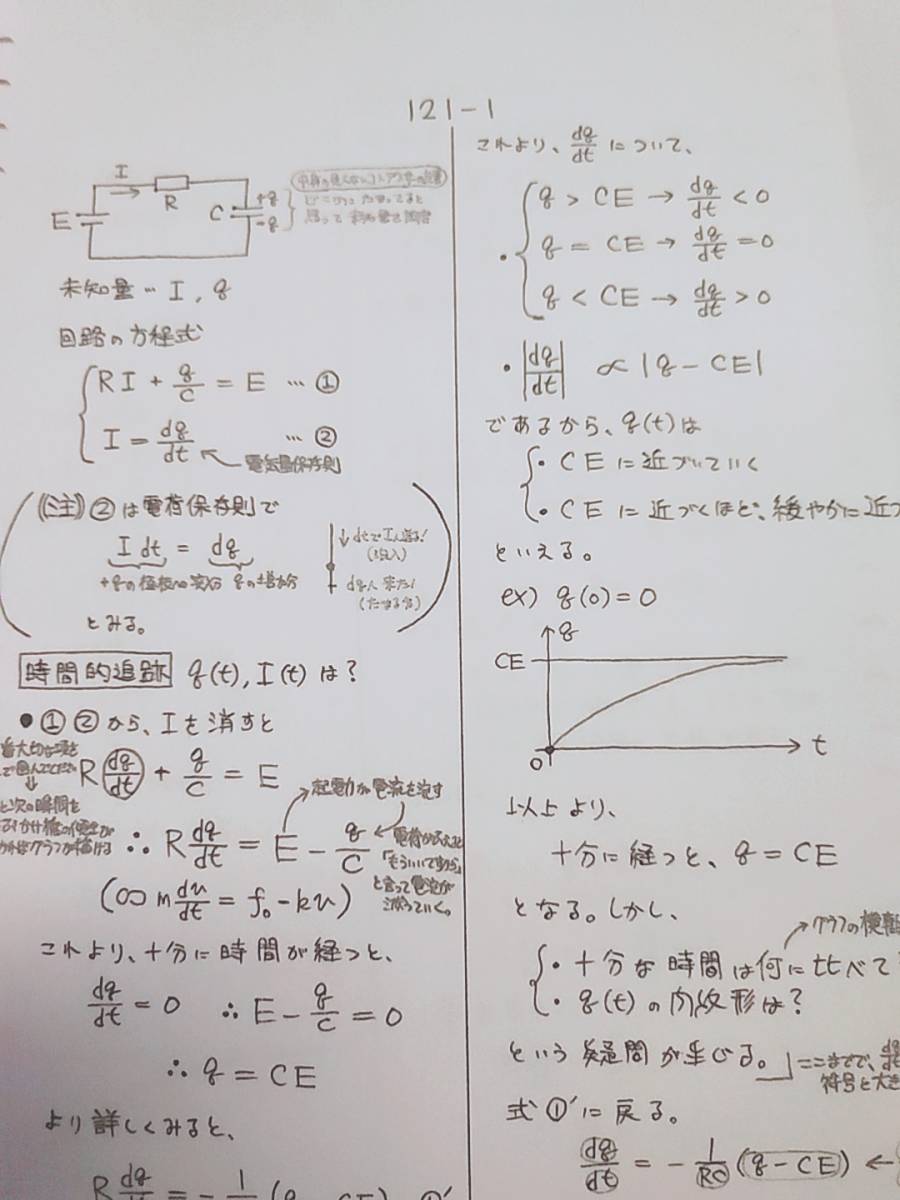 121-1
I
R
E
C
+q
-q
未知量… I, q
回路の方程式
RI + q/C = E … ①
I = dq/dt … ②
電気量保存則
(注) ②は電荷保存則で
I dt = dq
+qの極板への q の増加分
↓dtで I 入る!
dq 来た!
とみる。
時間的追跡 q(t), I(t) は?
● ①②から、Iを消すと
R dq/dt + q/C = E
∴ R dq/dt = E - q/C
起電力が電流を流す
「もういいですから」
と言って電流が
減っていく。
(∞ m dv/dt = f₀ - kv)
これより、十分に時間が経つと、
dq/dt = 0 ∴ E - q/C = 0
∴ q = CE
より詳しくみると、
R dq/dt = - 1 (q - CE) ①′
これより、dq/dt について、
・ q > CE → dq/dt < 0
q = CE → dq/dt = 0
q < CE → dq/dt > 0
・|dq/dt| ∝ |q - CE|
であるから、q(t)は
・CE に近づいていく
・CE に近づくほど、緩やかに近づ
といえる。
ex) q(0) = 0
q
CE
0
t
以上より、
十分に経つと、q = CE
となる。しかし、
グラフの横軸
・十分な時間は何に比べて?
・q(t) の関数形は?
という疑問が生じる。
ここまでで、dq
符号と大き
式①′に戻る。
dq/dt = - 1/RC (q - CE) ←